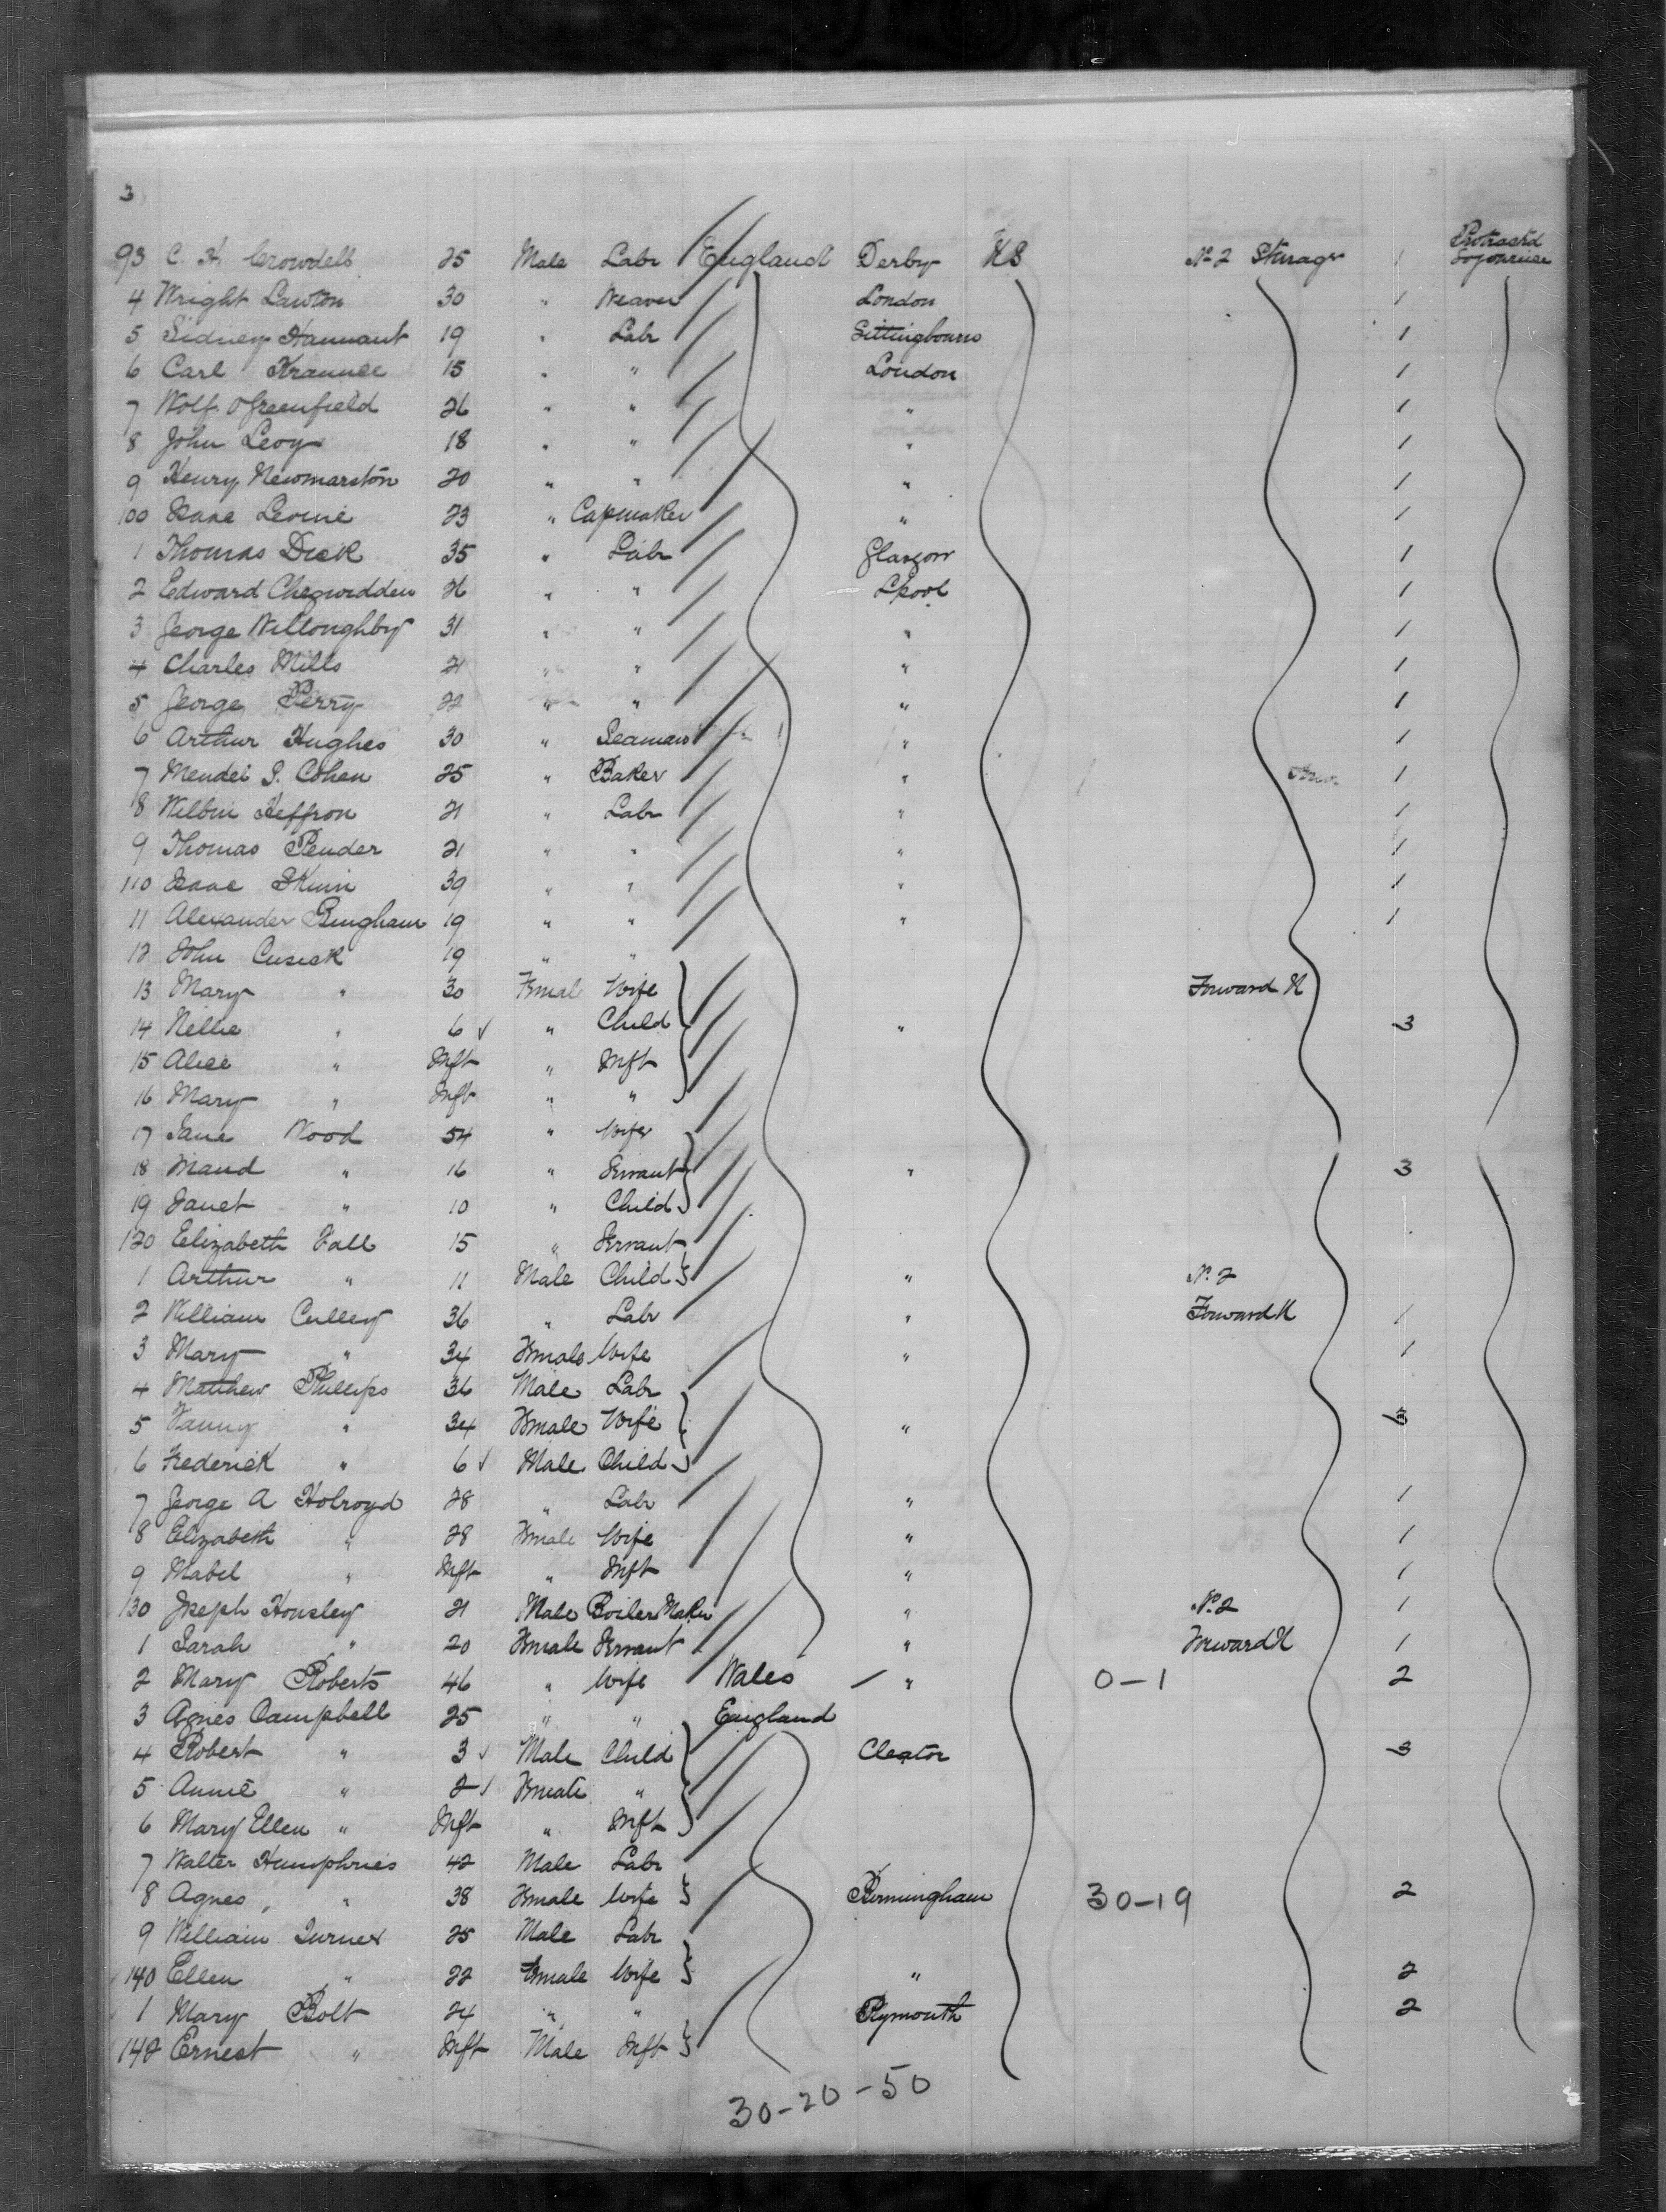 3
93 C. H. Crowdell 25 Male Labr England Derby U S No 2 Steerage 1 Protracted Sojourner
4 Wright Lawton 30 " Weaver London 1
5 Sidney Hannant 19 " Labr Sittingbourne 1
6 Carl 15 " " London 1
7 Wolf Greenfield 26 " " " 1
8 John Levy 18 " " " 1
9 Henry Newmarston 20 " " " 1
100 Isaac Levine 23 " Capmaker " 1
1 Thomas Dick 35 " Labr Glasgow 1
2 Edward Chegwidden 26 " " Lpool 1
3 George Willoughby 31 " " " 1
4 Charles Mills 21 " " " 1
5 George Perry 22 " " " 1
6 Arthur Hughes 30 " Seaman " 1
7 Mendel S. Cohen 25 " Baker " 1
8 Heffron 21 " Labr " 1
9 Thomas Pender 21 " " " 1
110 Isaac 39 " " " 1
11 Alexander Bingham 19 " " " 1
12 John Cusick 19 " "
13 Mary " 30 Female Wife Forward H
14 Nellie " 6 ✓ " Child " 3
15 Alice " Inft " Inft
16 Mary " Inft " "
17 Jane Wood 54 " Wife
18 Maud " 16 " Servant " 3
19 Janet " 10 " Child
120 Elizabeth Hall 15 " Servant
1 Arthur " 11 Male Child " No 2
2 William Culley 36 " Labr " Forward H 1
3 Mary " 34 Female Wife " 1
4 Matthew Phillips 36 Male Labr
5 Fanny " 34 Female Wife " 3
6 Frederick " 6 ✓ Male Child
7 George A Holroyd 28 " Labr " 1
8 Elizabeth " 28 Female Wife " 1
9 Mabel " Inft " Inft " 1
130 Joseph Housley 21 Male Boiler Maker " No 2 1
1 Sarah " 20 Female Servant " Forward H 1
2 Mary Roberts 46 " Wife Wales " 0-1 2
3 Agnes Campbell 25 " " England
4 Robert " 3 ✓ Male Child Cleator 3
5 Annie " 2 ✓ Female "
6 Mary Ellen " Inft " Inft
7 Walter Humphries 42 Male Labr
8 Agnes " 38 Female Wife Birmingham 30-19 2
9 William Turner 25 Male Labr
140 Ellen " 22 Female Wife " 2
1 Mary Bolt 24 " " Plymouth 2
142 Ernest " Inft Male Inft
30-20-50